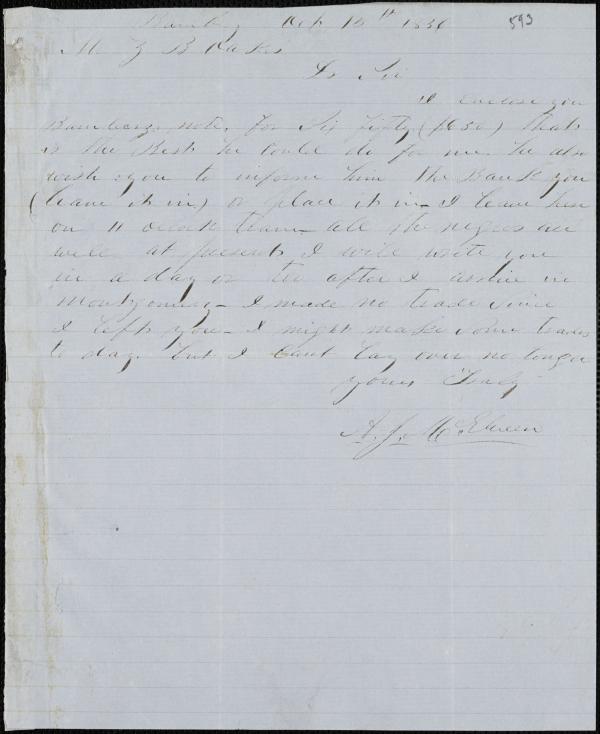 Bamberg Oct 15th 1856 593
Mr Z B Oakes
Dr Sir
I enclose you
Bambergs note, for Six fifty ($650) that
is the Best he could do for me. he also
wish you to inform him the Bank you
(leave it in) or place it in— I leave here
on 11 oclock train— all the negros are
well at present I will write you
in a day or two after I arive in
Montgomery— I made no trade since
I left you— I might make some trades
to day. but I cant lay over no longer
yours Truly
A. J. McElveen